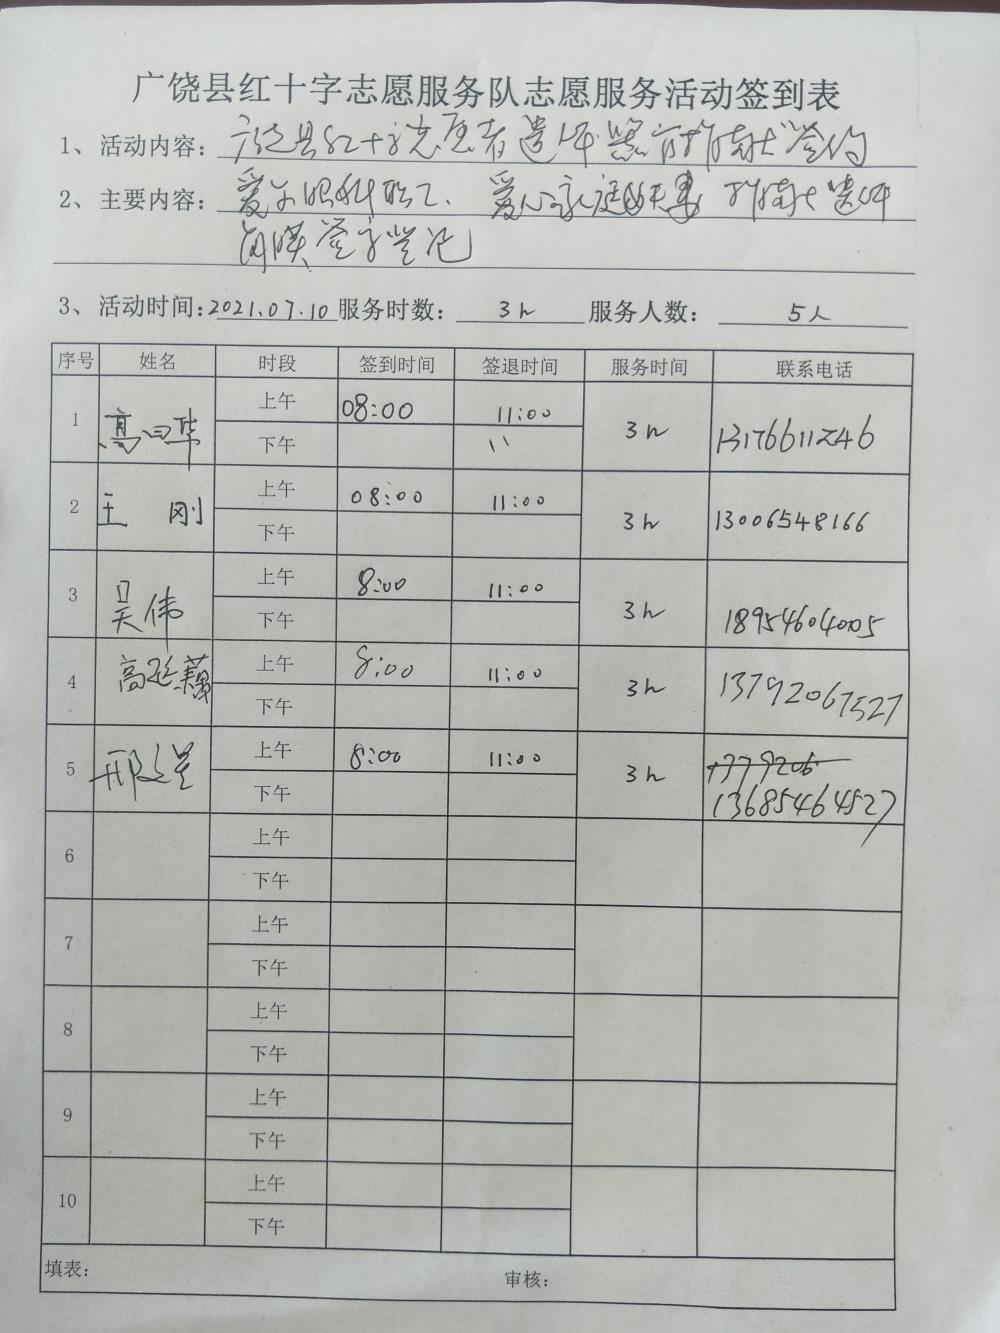 广饶县红十字志愿服务队志愿服务活动签到表
1、活动内容：广饶县红十字志愿者遗体器官捐献签约
2、主要内容：爱尔眼科职工、爱心家庭夫妻捐献遗体
角膜签字登记
3、活动时间：2021.07.10 服务时数：3h 服务人数：5人
序号 姓名 时段 签到时间 签退时间 服务时间 联系电话
1 高 华 上午 08:00 11:00 3h 13176611246
下午
2 王刚 上午 08:00 11:00 3h 13006548166
下午
3 吴伟 上午 8:00 11:00 3h 18954604005
下午
4 高延 上午 8:00 11:00 3h 13792067527
下午
5 邢 上午 8:00 11:00 3h
下午 13685464527
6 上午
下午
7 上午
下午
8 上午
下午
9 上午
下午
10 上午
下午
填表： 审核：